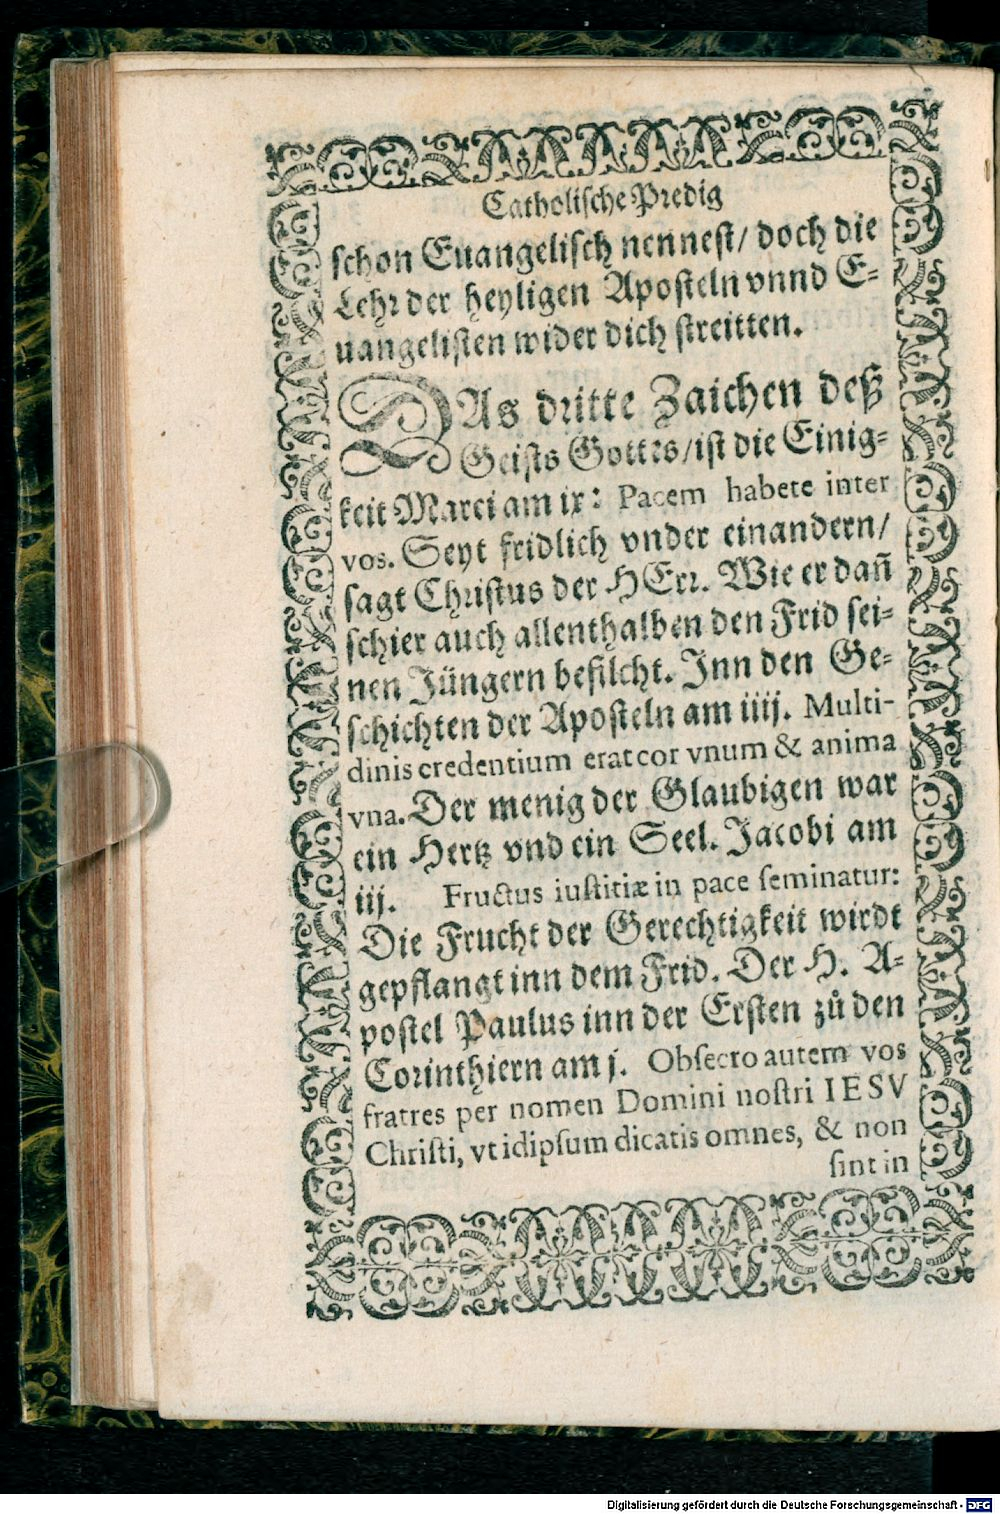 Catholische Predig
schon Euangelisch nennest/ doch die
Lehr der heyligen Aposteln vnnd E-
uangelisten wider dich streitten.
DAs dritte Zaichen deß
Geists Gottes/ist die Einig-
keit Marci am ix: Pacem habete inter
vos. Seyt fridlich vnder einandern/
sagt Christus der HErr. Wie er dañ
schier auch allenthalben den Frid sei-
nen Jüngern befilcht. Inn den Ge-
schichten der Aposteln am iiij. Multi-
dinis credentium erat cor vnum & anima
vna. Der menig der Glaubigen war
ein Hertz vnd ein Seel. Jacobi am
iij. Fructus iustitiæ in pace seminatur:
Die Frucht der Gerechtigkeit wirdt
gepflangt inn dem Frid. Der H. A-
postel Paulus inn der Ersten zů den
Corinthiern am j. Obsecro autem vos
fratres per nomen Domini nostri IESV
Christi, vt idipsum dicatis omnes, & non
sint in
Digitalisierung gefördert durch die Deutsche Forschungsgemeinschaft - DFG